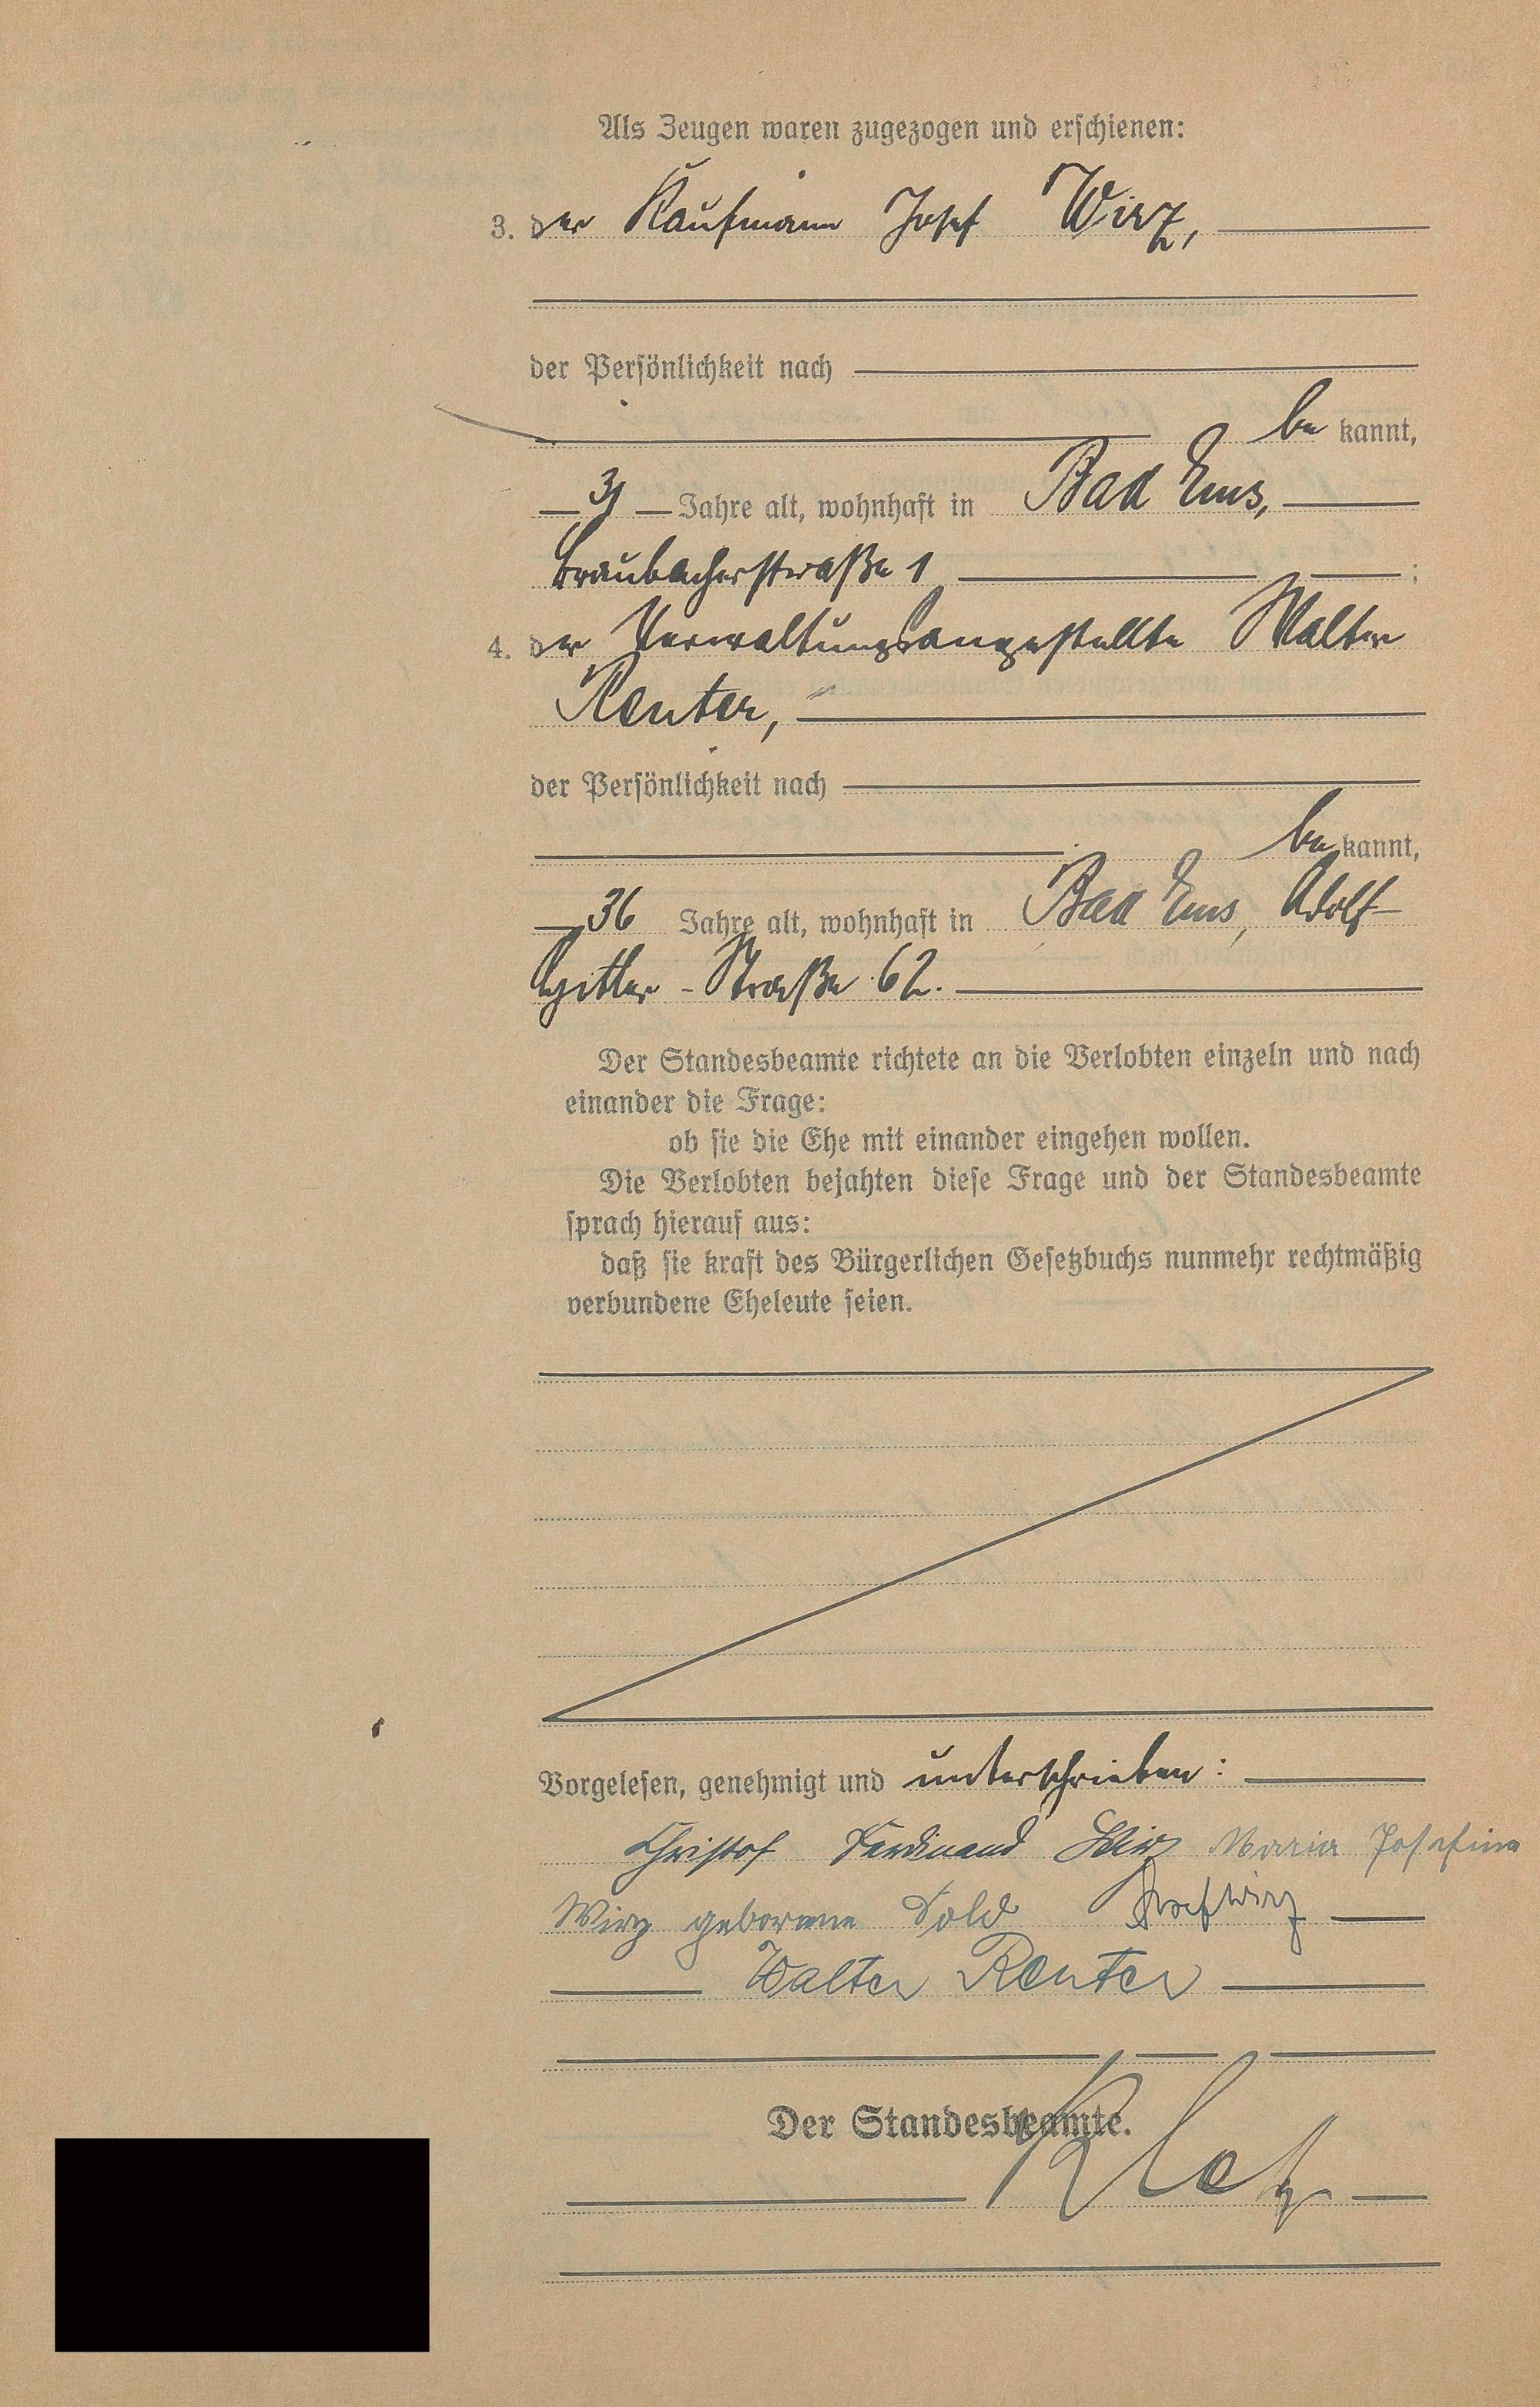 Als Zeugen waren zugezogen und erschienen:
3. der Kaufmann Josef Wirz,
der Persönlichkeit nach
be kannt,
31 Jahre alt, wohnhaft in Bad Ems,
Braubacherstraße 1 ;
4. der Verwaltungsangestellte Walter
Renter,
der Persönlichkeit nach
be kannt,
36 Jahre alt, wohnhaft in Bad Ems, Adolf-
Hitler-Straße 62.
Der Standesbeamte richtete an die Verlobten einzeln und nach
einander die Frage:
ob sie die Ehe mit einander eingehen wollen.
Die Verlobten bejahten diese Frage und der Standesbeamte
sprach hierauf aus:
daß sie kraft des Bürgerlichen Gesetzbuchs nunmehr rechtmäßig
verbundene Eheleute seien.
Vorgelesen, genehmigt und unterschrieben:
Christof Ferdinand Wirz Maria Josefine
Wirz geborene Sold Josef Wirz
Walter Renter
Der Standesbeamte.